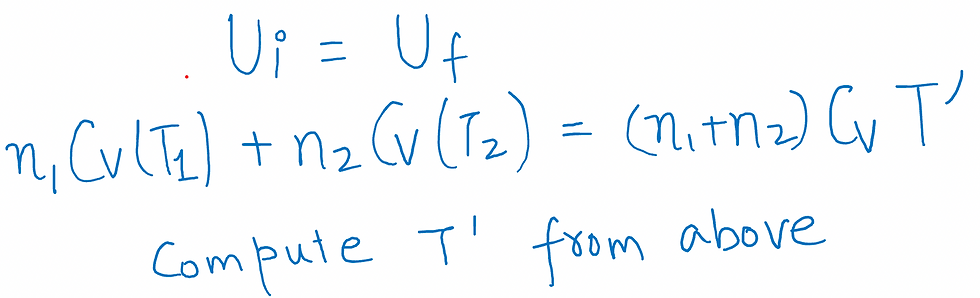 Ui = Uf
n₁Cv(T₁) + n₂Cv(T₂) = (n₁+n₂)CvT'
Compute T' from above